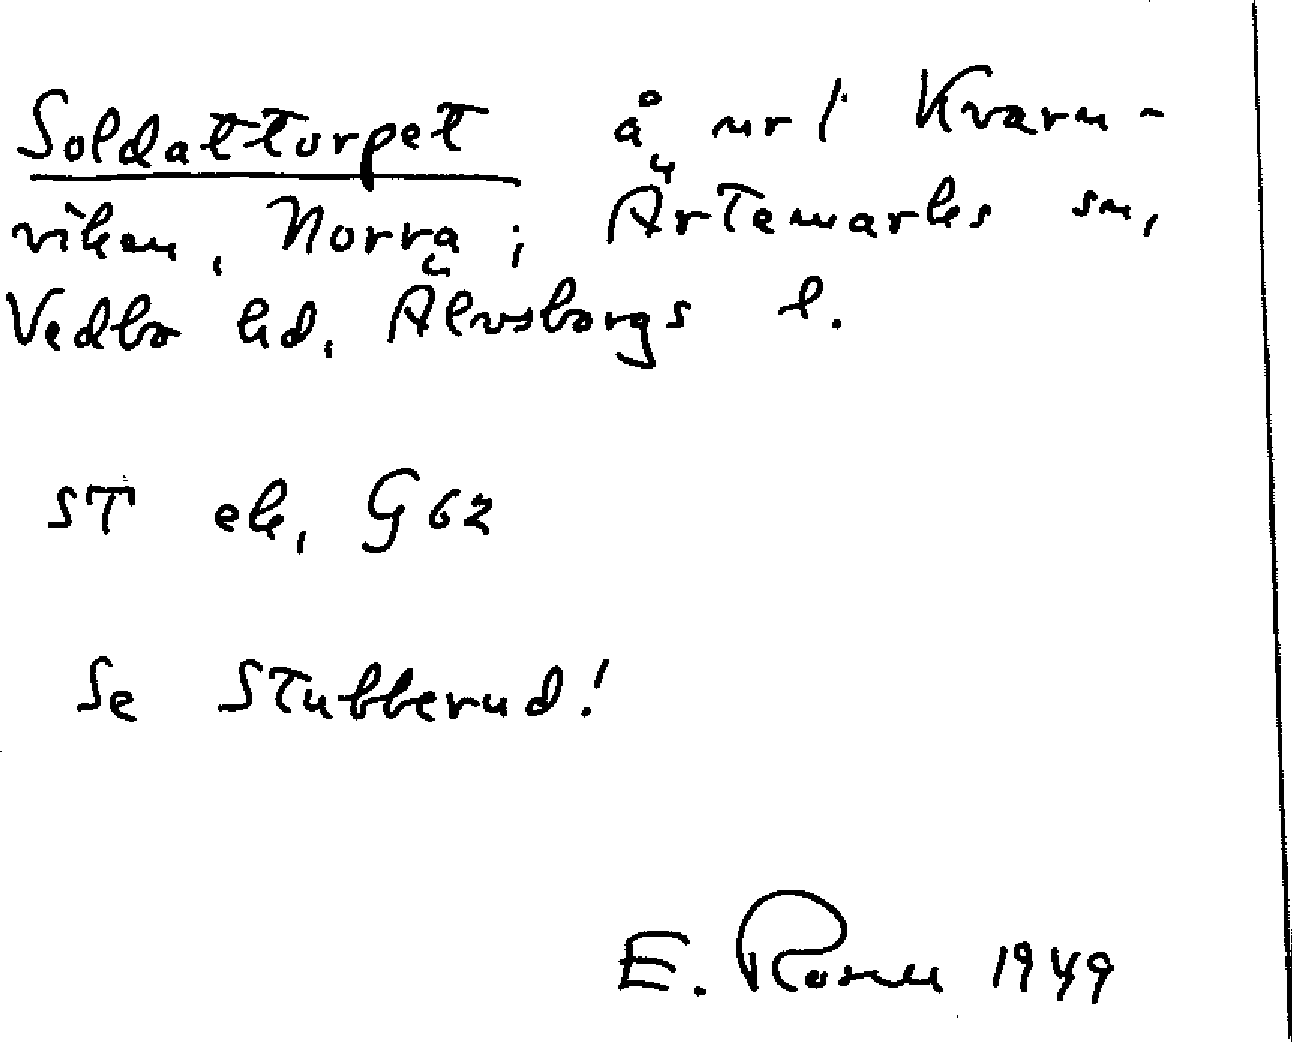 Soldattorpet å nr 1 Kvarn-
viken, Norra; Ärtemarks sn,
Vedbo hd, Älvsborgs l.
ST ek, G62
Se Stubberud!
E. Rosen 1949